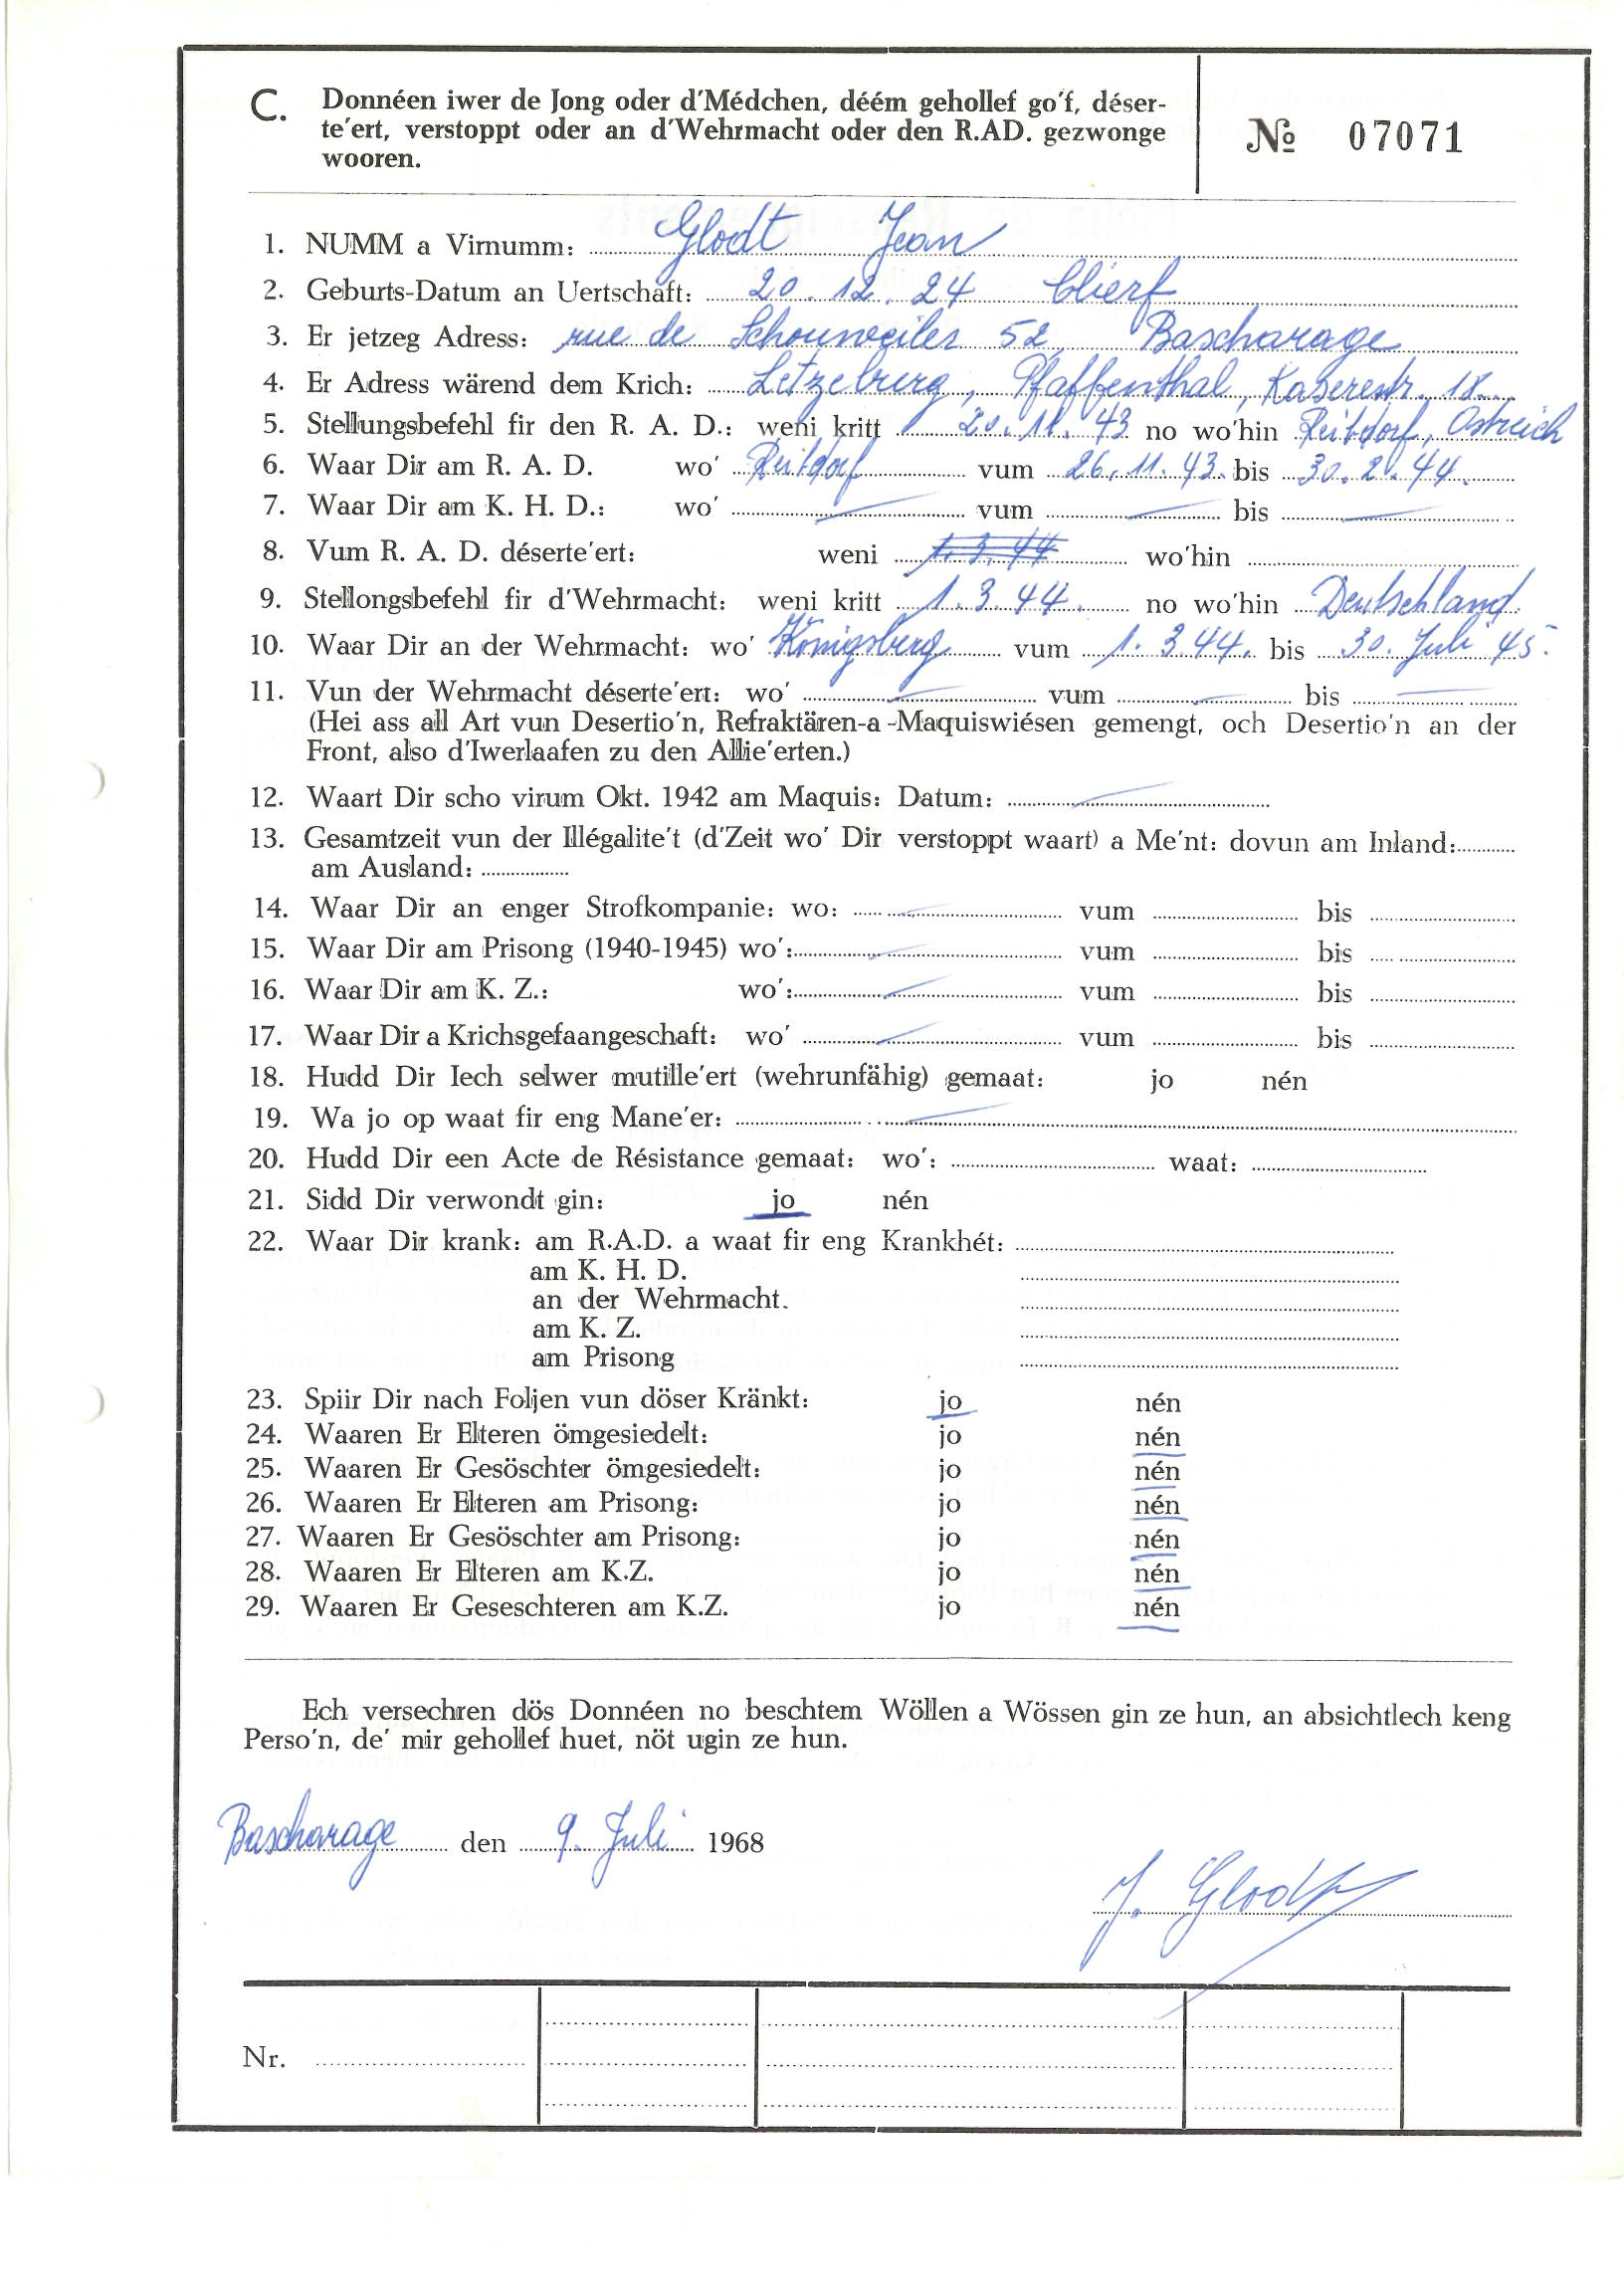 C. Donnéen iwer de Jong oder d'Médchen, déém gehollef go'f, déser-
te'ert, verstoppt oder an d'Wehrmacht oder den R.AD. gezwonge
wooren.
№ 07071
1. NUMM a Virnumm: Glodt Jean
2. Geburts-Datum an Uertschaft: 20.12.24 Clierf
3. Er jetzeg Adress: rue de Schouweiler 52, Bascharage
4. Er Adress wärend dem Krich: Letzeburg, Pfaffenthal, 18
5. Stellungsbefehl fir den R. A. D.: weni kritt 20.11.43 no wo'hin Reitdorf, Ostreich
6. Waar Dir am R. A. D. wo' Reitdorf vum 26.11.43. bis 30.2.44.
7. Waar Dir am K. H. D.: wo' vum bis
8. Vum R. A. D. déserte'ert: weni 1.3.44 wo'hin
9. Stellongsbefehl fir d'Wehrmacht: weni kritt 1.3.44. no wo'hin Deutschland
10. Waar Dir an der Wehrmacht: wo' Königsberg vum 1.3.44. bis 30. Juli 45.
11. Vun der Wehrmacht déserte'ert: wo' vum bis
(Hei ass all Art vun Desertio'n, Refraktären-a-Maquiswiésen gemengt, och Desertio'n an der
Front, also d'Iwerlaafen zu den Allie'erten.)
12. Waart Dir scho virum Okt. 1942 am Maquis: Datum:
13. Gesamtzeit vun der Illégalite't (d'Zeit wo' Dir verstoppt waart) a Me'nt: dovun am Inland:
am Ausland:
14. Waar Dir an enger Strofkompanie: wo: vum bis
15. Waar Dir am Prisong (1940-1945) wo': vum bis
16. Waar Dir am K. Z.: wo': vum bis
17. Waar Dir a Krichsgefaangeschaft: wo' vum bis
18. Hudd Dir Iech selwer mutille'ert (wehrunfähig) gemaat: jo nén
19. Wa jo op waat fir eng Mane'er:
20. Hudd Dir een Acte de Résistance gemaat: wo': waat:
21. Sidd Dir verwondt gin: jo nén
22. Waar Dir krank: am R.A.D. a waat fir eng Krankhét:
am K. H. D.
an der Wehrmacht.
am K. Z.
am Prisong
23. Spiir Dir nach Foljen vun döser Kränkt: jo nén
24. Waaren Er Elteren ömgesiedelt: jo nén
25. Waaren Er Gesöschter ömgesiedelt: jo nén
26. Waaren Er Elteren am Prisong: jo nén
27. Waaren Er Gesöschter am Prisong: jo nén
28. Waaren Er Elteren am K.Z. jo nén
29. Waaren Er Geseschteren am K.Z. jo nén
Ech versechren dös Donnéen no beschtem Wöllen a Wössen gin ze hun, an absichtlech keng
Perso'n, de' mir gehollef huet, nöt ugin ze hun.
Bascharage den 9. Juli 1968
J. Glodt
Nr.